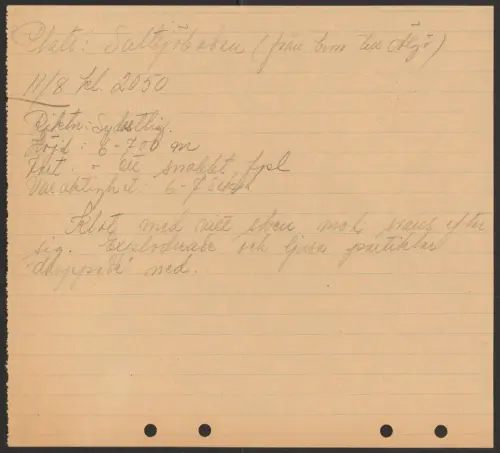 Plats: Saltsjöbaden (från bron vid Älgö)
11/8 kl. 2050
Riktn: Sydostlig.
Höjd: 6-700 m
Fart: - ett snabbt fpl
Varaktighet: 6-7 sek
Klot med vitt sken mod svans efter
sig. Exploderade och ljusa partiklar
"droppade" ned.